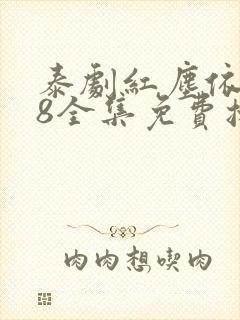 泰劇紅塵依
8全集免費
肉肉想喫肉